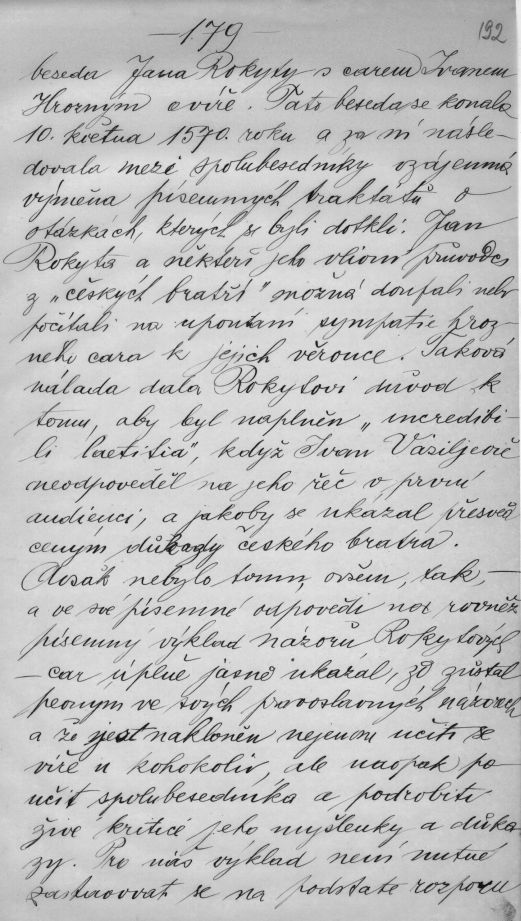 — 179 —
192
beseda Jana Rokyty s carem Ivanem
Hrozným o víře. Tato beseda se konala
10. května 1570. roku a za ní násle-
dovala mezi spolubesedníky vzájemná
výměna písemných traktátů o
otázkách, kterých se byli dotkli. Jan
Rokyta a někteří jeho vlivní průvodci
z „českých bratří" možná doufali nebo
počítali na upoutání sympatie hroz-
ného cara k jejich věrouce. Taková
nálada dala Rokytovi důvod k
tomu, aby byl naplněn „incredibi-
li laetitia", když Ivan Vasiljevič
neodpověděl na jeho řeč v první
audienci, a jakoby se ukázal přesvěd
ceným důkazy českého bratra.
Avšak nebylo tomu, ovšem, tak, —
a ve své písemné odpovědi na rovněž
písemný výklad názorů Rokytových
— car úplně jasně ukázal, že zůstal
pevným ve svých pravoslavných názorech
a že jest nakloněn nejenom učiti se
víře u kohokoliv, ale naopak po
učit spolubesedníka a podrobiti
živé kritice jeho myšlenky a důka
zy. Pro náš výklad není nutné
zastavovat se na podstatě rozporu